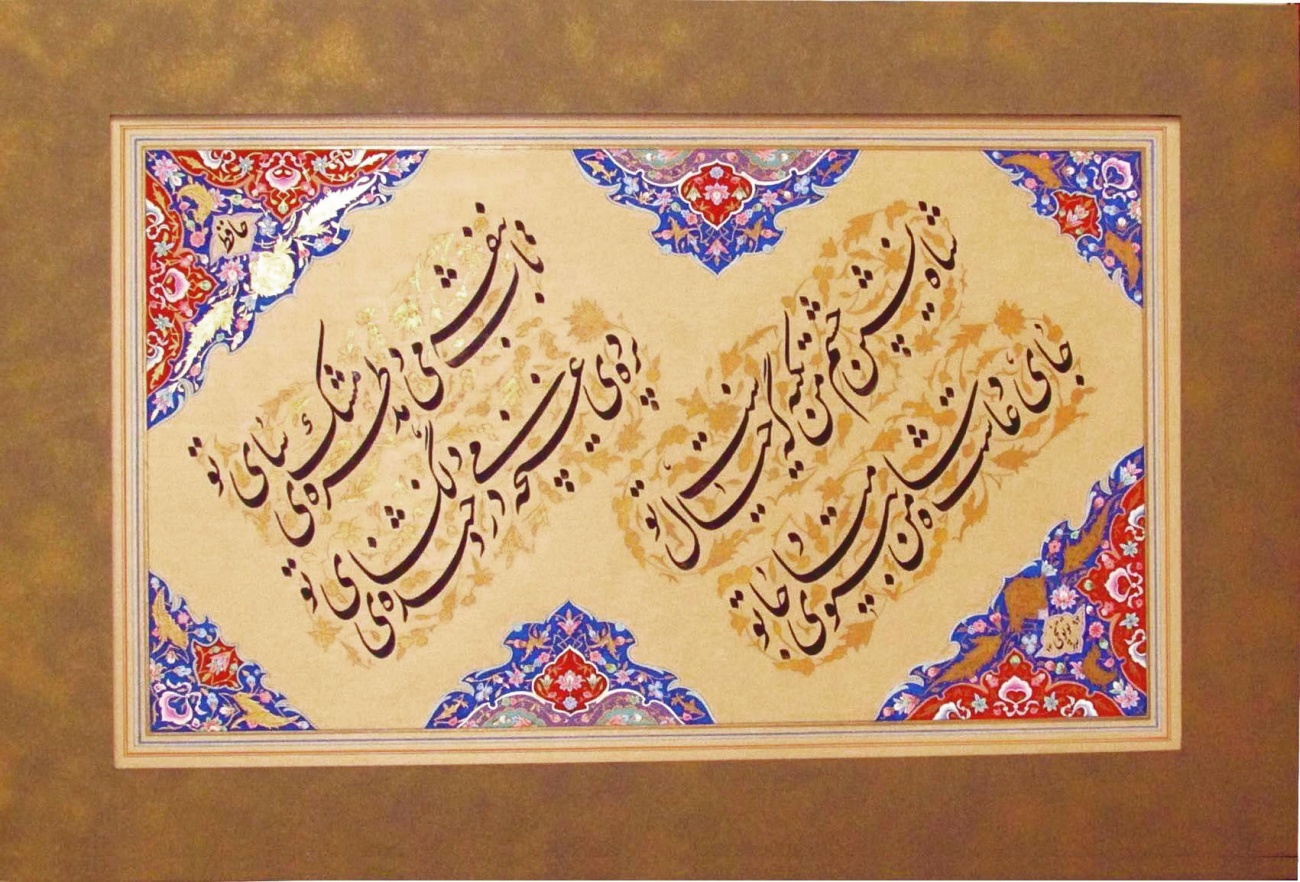 حافظ
تاب بنفشه می دهد طره‌ی مشک سای تو
پرده‌ی غنچه می درد خنده‌ی دلگشای تو
شاه نشین چشم من تکیه گه خیال توست
جای دعاست شاه من بی تو مباد جای تو